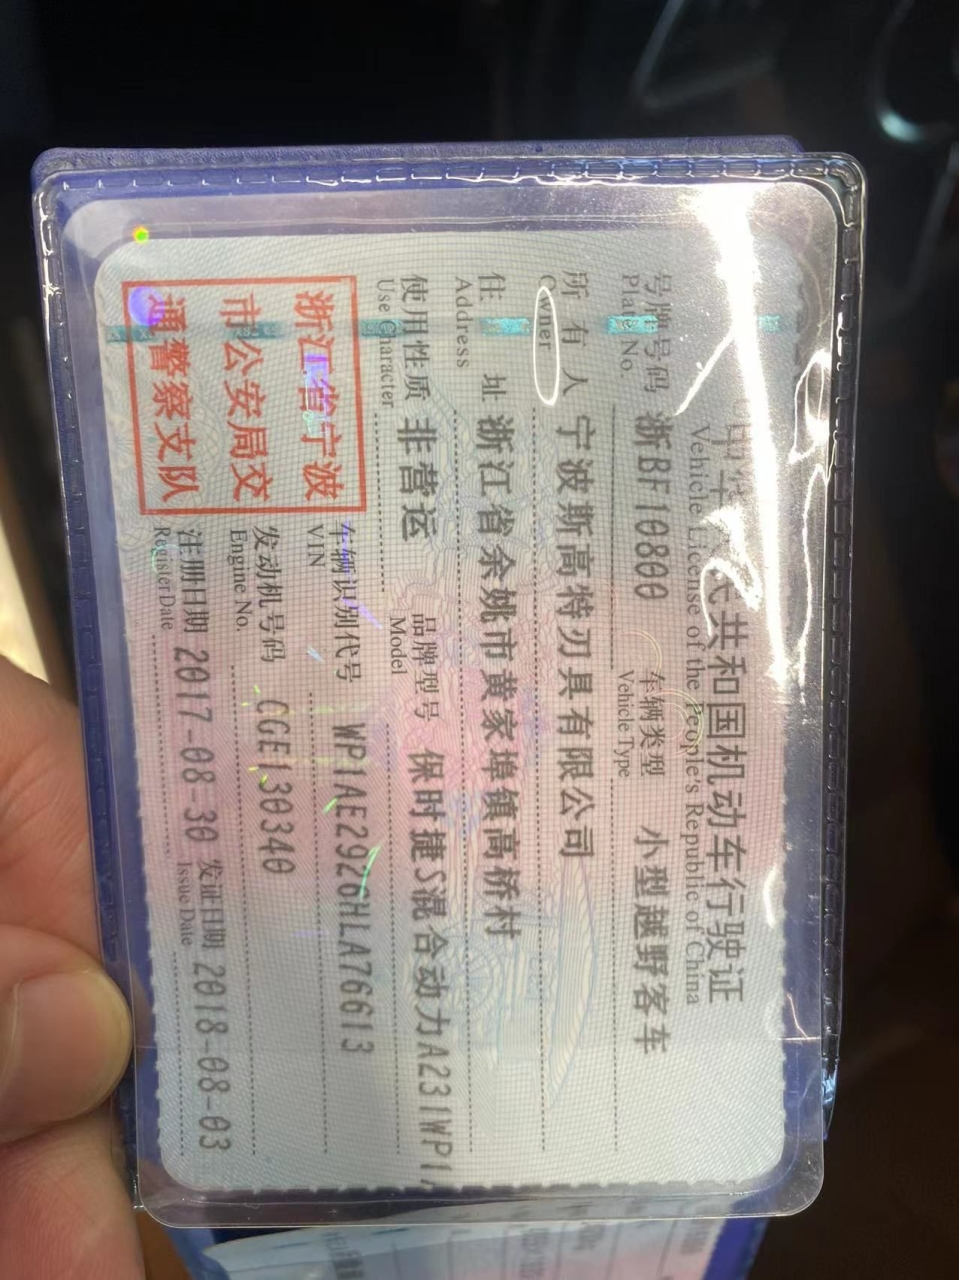 中华人民共和国机动车行驶证
Vehicle License of the People's Republic of China
号牌号码 浙BF10800 车辆类型 小型越野客车
Plate No. Vehicle Type
所有人 宁波斯高特刃具有限公司
Owner
住址 浙江省余姚市黄家埠镇高桥村
Address
使用性质 非营运 品牌型号 保时捷S混合动力A231WP1
Use Character Model
浙江省宁波
市公安局交
通警察支队
车辆识别代号 WP1AE2926HLA76613
VIN
发动机号码 CGE130340
Engine No.
注册日期 2017-08-30 发证日期 2018-08-03
Register Date Issue Date